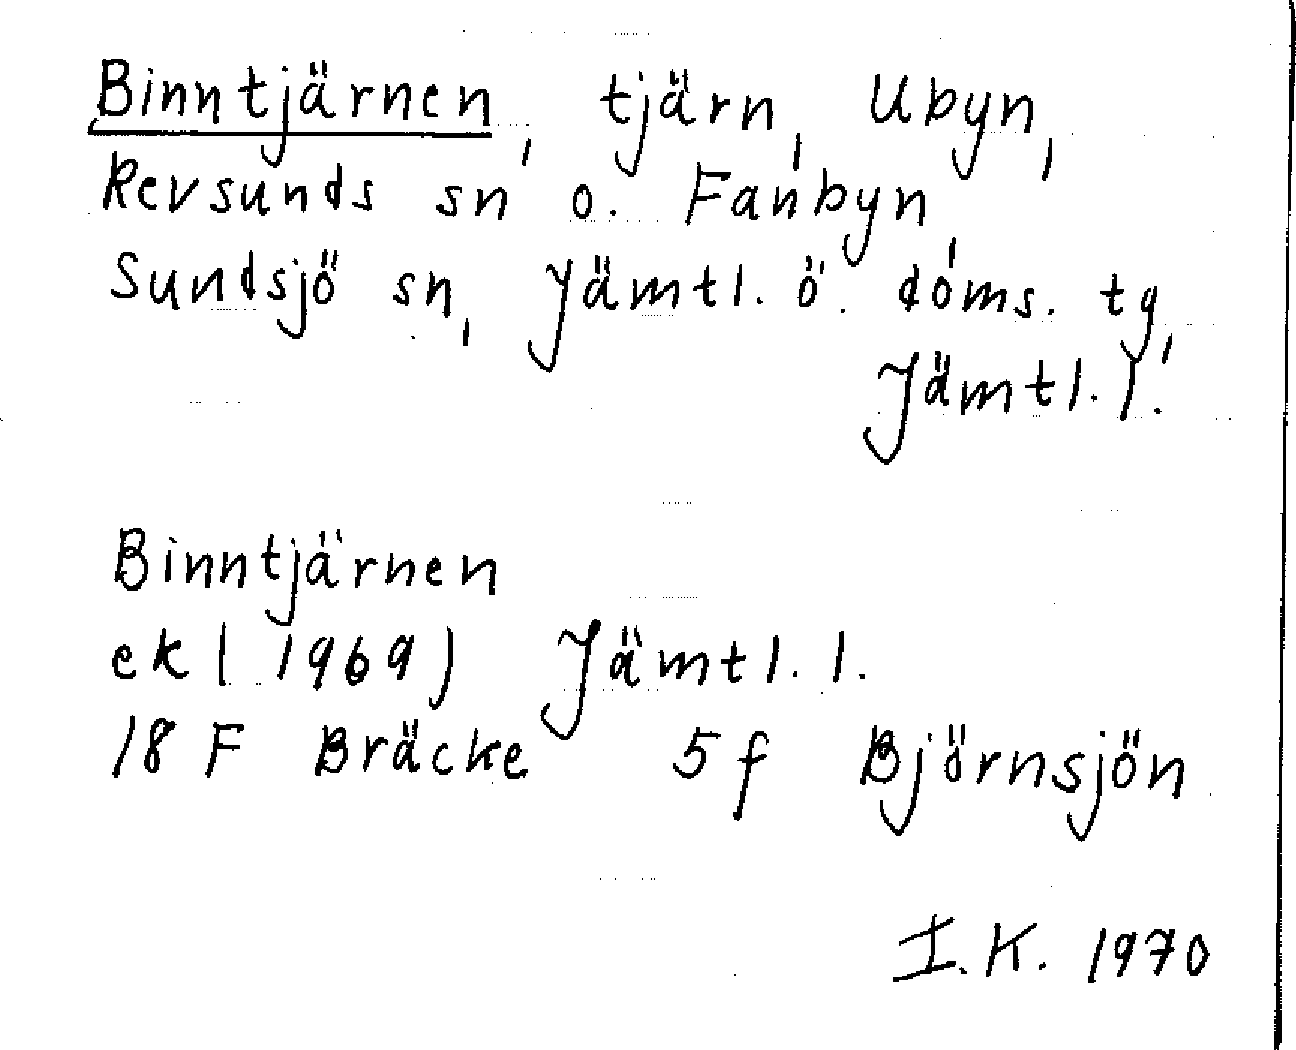 Binntjärnen, tjärn, Ubyn,
Revsunds sn o. Fanbyn,
Sundsjö sn, Jämtl. ö. doms. tg,
Jämtl. l.
Binntjärnen
ek (1969) Jämtl. l.
18 F Bräcke 5 f Björnsjön
I. K. 1970